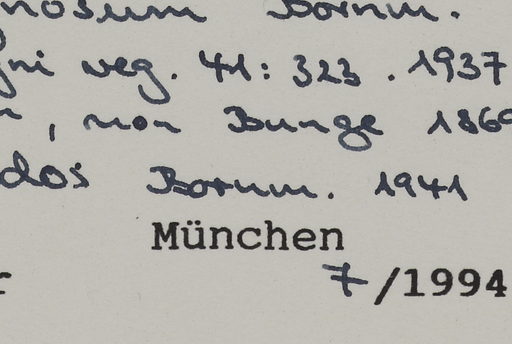 nosum Bornm.
gni veg. 41: 323. 1937
, non Bunge 1869
dos Bornm. 1941
München
7/1994